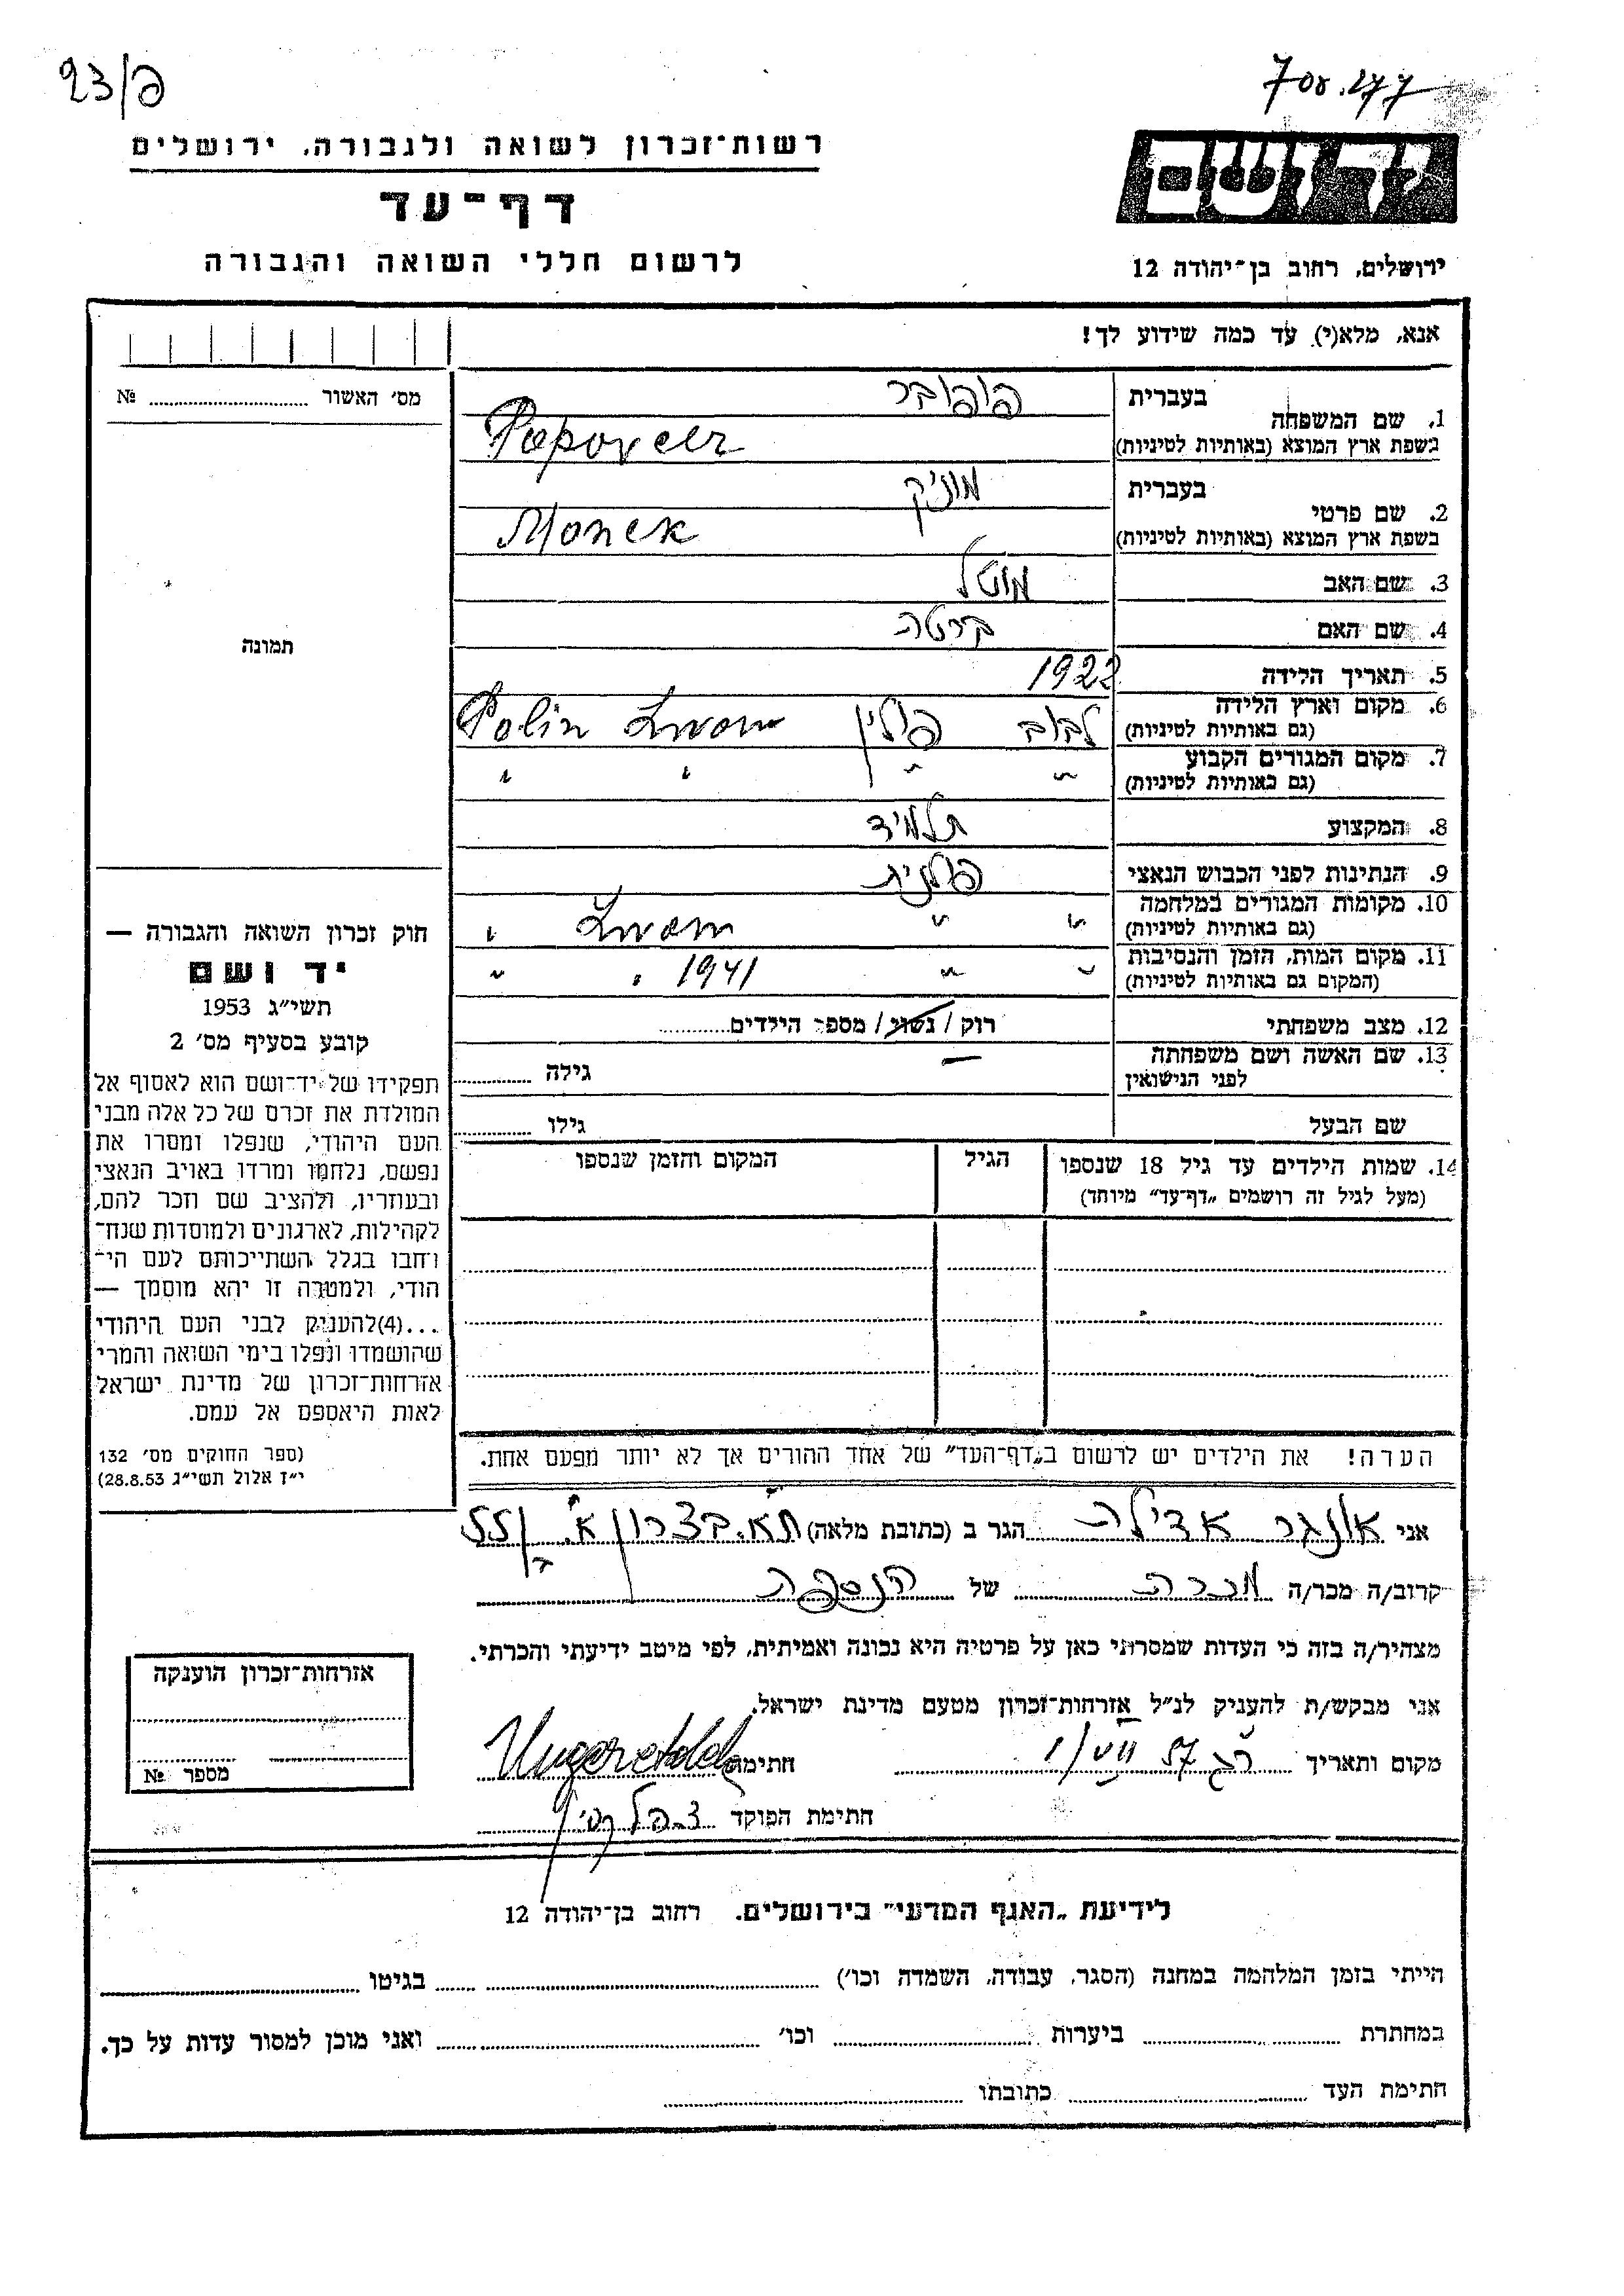 פ/23
708.277
רשות-זכרון לשואה ולגבורה, ירושלים
דף-עד
לרשום חללי השואה והגבורה
יד ושם
ירושלים, רחוב בן-יהודה 12
אנא, מלא(י) עד כמה שידוע לך!
מס׳ האשור № 
תמונה
1. שם המשפחה
בעברית פופובר
בשפת ארץ המוצא (באותיות לטיניות)
2. שם פרטי
בעברית מוניק
בשפת ארץ המוצא (באותיות לטיניות) Monek
3. שם האב מוטל
4. שם האם ברטה
5. תאריך הלידה 1922
6. מקום וארץ הלידה לבוב פולין Lwow Polin
(גם באותיות לטיניות)
7. מקום המגורים הקבוע " " " "
(גם באותיות לטיניות)
8. המקצוע תלמיד
9. הנתינות לפני הכבוש הנאצי פולנית
10. מקומות המגורים במלחמה " " Lwow "
(גם באותיות לטיניות)
11. מקום המות, הזמן והנסיבות " " 1941 " "
(המקום גם באותיות לטיניות)
12. מצב משפחתי רוק / נשוי / מספר הילדים
13. שם האשה ושם משפחתה — גילה
לפני הנישואין
שם הבעל גילו
14. שמות הילדים עד גיל 18 שנספו הגיל המקום והזמן שנספו
(מעל לגיל זה רושמים „דף-עד" מיוחד)
הערה! את הילדים יש לרשום ב„דף-העד" של אחד ההורים אך לא יותר מפעם אחת.
חוק זכרון השואה והגבורה —
יד ושם
תשי״ג 1953
קובע בסעיף מס׳ 2
תפקידו של יד-ושם הוא לאסוף אל
המולדת את זכרם של כל אלה מבני
העם היהודי, שנפלו ומסרו את
נפשם, נלחמו ומרדו באויב הנאצי
ובעוזריו, ולהציב שם וזכר להם,
לקהילות, לארגונים ולמוסדות שנח-
רחבו בגלל השתייכותם לעם הי-
הודי, ולמטרה זו יהא מוסמך —
...(4)להעניק לבני העם היהודי
שהושמדו ונפלו בימי השואה והמרי
אזרחות-זכרון של מדינת ישראל
לאות היאספם אל עמם.
(ספר החוקים מס׳ 132
י״ז אלול תשי״ג 28.8.53)
אני אונגר אדילה הגר ב (כתובת מלאה) ת״א. בצרון
קרוב/ה מכר/ה מכרה של הנספה
מצהיר/ה בזה כי העדות שמסרתי כאן על פרטיה היא נכונה ואמיתית, לפי מיטב ידיעתי והכרתי.
אני מבקש/ת להעניק לנ״ל אזרחות-זכרון מטעם מדינת ישראל.
מקום ותאריך רג 1/VII 57 חתימה
חתימת הפוקד
אזרחות-זכרון הוענקה
מספר №
לידיעת „האגף המדעי" בירושלים. רחוב בן-יהודה 12
הייתי בזמן המלהמה במחנה (הסגר, עבודה, השמדה וכו׳) בגיטו
במחתרת ביערות וכו׳ ואני מוכן למסור עדות על כך.
חתימת העד כתובתו